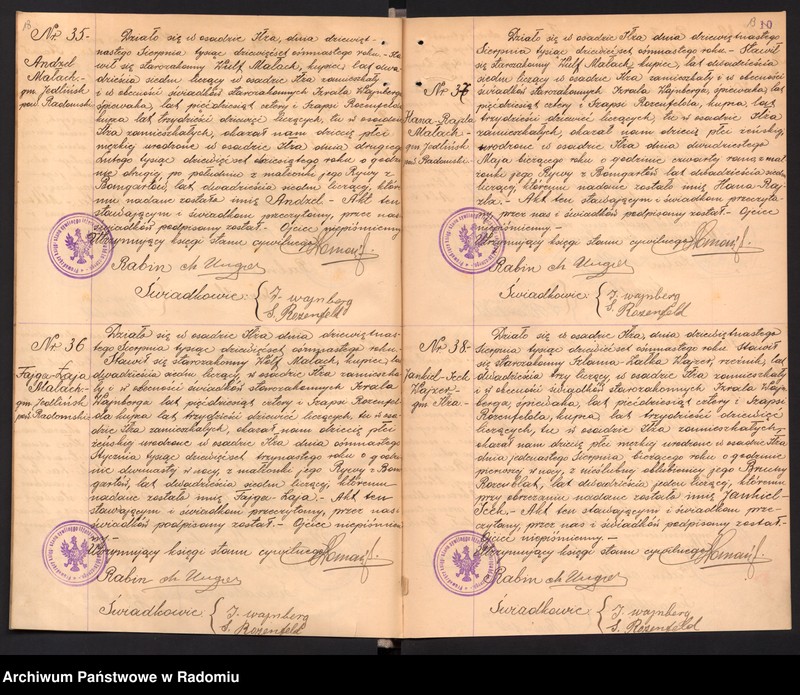 Nr 35-
Andzel
Malach.-
gm. Jedlińsk
pow. Radomski
Działo się w osadzie Iłża, dnia dziewięt-
nastego Sierpnia tysiąc dziewięćset ośmnastego roku.- Sta
wił się starozakonny Wulf Malach, kupiec, lat dwa
dzieścia siedm liczący w osadzie Iłża zamieszkały
i w obecności świadków starozakonnych Izraela Wajnberga
śpiewaka, lat pięćdziesiąt cztery i Szapsi Rozenfelda
kupca lat trzydzieści dziewięć liczących, tu w osadzie
Iłża zamieszkałych, okazał nam dziecię płci
męzkiej urodzone w osadzie Iłża dnia drugiego
Lutego tysiąc dziewięćset dziesiątego roku o godzi
nie drugiej po południu z małżonki jego Rywy z
Bomgartów, lat dwadzieścia siedm liczącej, które
mu nadane zostało imię Andzel.- Akt ten
stawającym i świadkom przeczytany, przez nas
i świadków podpisany został.- Ojciec niepiśmienny
Utrzymujący księgi stanu cywilnego
Rabin ch Unger
Świadkowie: { J. wajnberg
S. Rozenfeld
Nr 36
Fajga-Łaja
Malach-
gm. Jedlińsk
pow. Radomski
Działo się w osadzie Iłża, dnia dziewiętnas-
tego Sierpnia tysiąc dziewięćset ośmnastego roku.-
Stawił się starozakonny Wulf Malach, kupiec, lat
dwadzieścia siedm liczący, w osadzie Iłża zamieszka
ły i w obecności świadków starozakonnych Izraela
Wajnberga lat pięćdziesiąt cztery i Szapsi Rozenfel
da kupca lat trzydzieści dziewięć liczących, tu w osa-
dzie Iłża zamieszkałych, okazał nam dziecię płci
żeńskiej urodzone w osadzie Iłża dnia ośmnastego
Stycznia tysiąc dziewięćset trzynastego roku o godzi
nie dwunastej w nocy, z małżonki jego Rywy z Bom
gartów, lat dwadzieścia siedm liczącej, któremu
nadane zostało imię Fajga-Łaja.- Akt ten
stawającym i świadkom przeczytany, przez nas
i świadków podpisany został.- Ojciec niepiśmien
Utrzymujący księgi stanu cywilnego
Rabin ch Unger
Świadkowie { J. wajnberg
S. Rozenfeld
10
Nr 37
Hana-Rajzla
Malach-
gm Jedlińsk
pow. Radomski-
Działo się w osadzie Iłża, dnia dziewiętnastego
Sierpnia tysiąc dziewięćset ośmnastego roku.- Stawił
się starozakonny Wulf Malach, kupiec, lat dwadzieścia
siedm liczący w osadzie Iłża zamieszkały i w obecności
świadków starozakonnych Izraela Wajnberga, śpiewaka lat
pięćdziesiąt cztery i Szapsi Rozenfelda, kupca lat
trzydzieści dziewięć liczących, tu w osadzie Iłża
zamieszkałych, okazał nam dziecię płci żeńskiej,
urodzone w osadzie Iłża dnia dwudziestego
Maja bieżącego roku o godzinie czwartej rano z mał
żonki jego Rywy z Bomgartów lat dwadzieścia siedm
liczącej, któremu nadane zostało imię Hana-Raj
zla.- Akt ten stawającym i świadkom przeczyta
ny, przez nas i świadków podpisany został.- Ojciec
niepiśmienny.-
Utrzymujący księgi stanu cywilnego
Rabin ch Unger
Świadkowie: { J. wajnberg
S. Rozenfeld
Nr 38-
Jankiel-Icek
Wajzer-
gm Iłża.-
Działo się w osadzie Iłża, dnia dziewiętnastego
Sierpnia tysiąc dziewięćset ośmnastego roku Stawił
się starozakonny Wajzer, rzeźnik, lat
dwadzieścia trzy liczący, w osadzie Iłża zamieszkały
i w obecności świadków starozakonnych Izraela Wajn
berga, śpiewaka, lat pięćdziesiąt cztery i Szapsi
Rozenfelda, kupca, lat trzydzieści dziewięć
liczących, tu w osadzie Iłża zamieszkałych,
okazał nam dziecię płci męzkiej urodzone w osadzie Iłża
dnia jedenastego Sierpnia bieżącego roku o godzinie
pierwszej w nocy, z nieślubnej oblubienicy jego
lat dwadzieścia jeden liczącej, któremu
przy obrzezaniu nadane zostało imię Jankiel-
Icek.- Akt ten stawającym i świadkom prze-
czytany, przez nas i świadków podpisany został.-
Ojciec niepiśmienny.-
Utrzymujący księgi stanu cywilnego
Rabin ch Unger
Świadkowie { J. wajnberg
S. Rozenfeld
Archiwum Państwowe w Radomiu